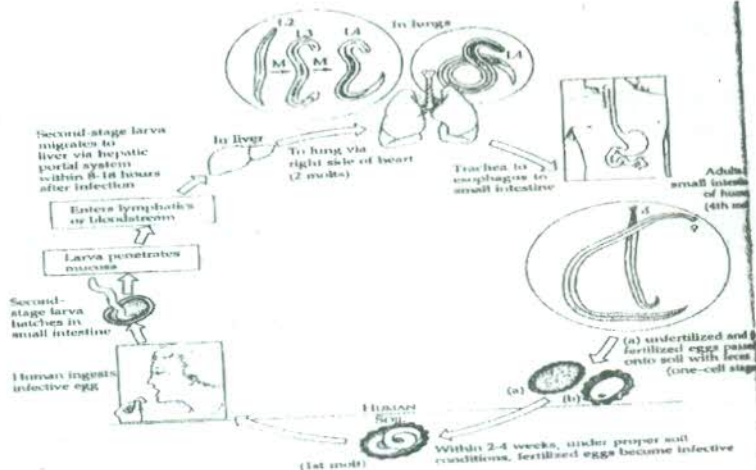 L2
L3
L4
M
M
In lungs
L4
Second-stage larva
migrates to
liver via hepatic
portal system
within 8-18 hours
after infection
In liver
To lung via
right side of heart
(2 molts)
Trachea to
esophagus to
small intestine
Adults
small intest
of hum
(4th mo
Enters lymphatics
or bloodstream
Larva penetrates
mucosa
Second-
stage larva
hatches in
small intestine
Human ingests
infective egg
♂
♀
(a) unfertilized and
fertilized eggs pass
onto soil with feces
(one-cell stage
(a)
(b)
HUMAN
SOIL
(1st molt)
Within 2-4 weeks, under proper soil
conditions, fertilized eggs become infective